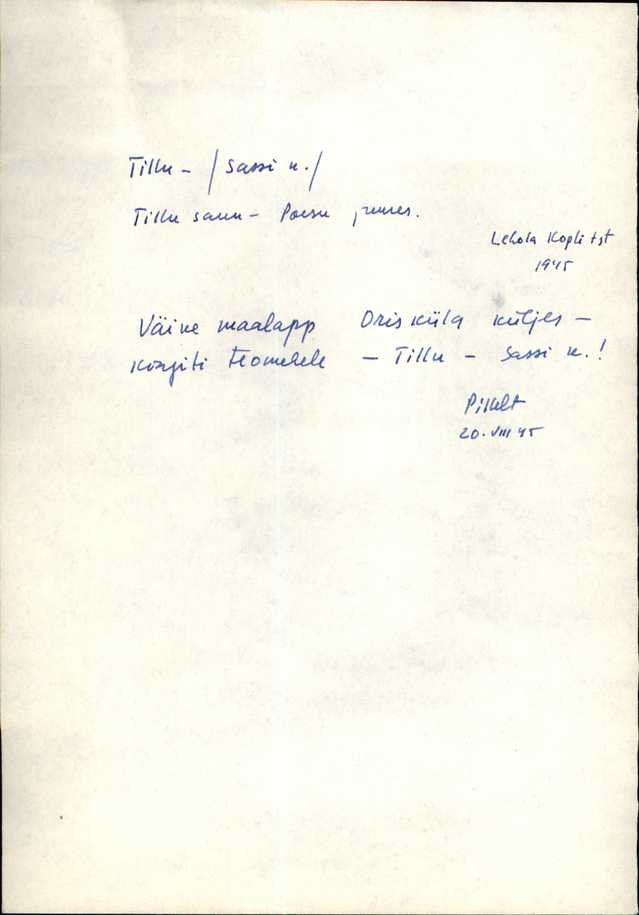 Tillu - /Sassi k./
Tillu saun - Poesu juures.
Lehola Kopli tst
1945
Väike maalapp Oris küla küljes -
kingiti teomehele - Tillu - Sassi k.!
Pikelt
20. VIII 45